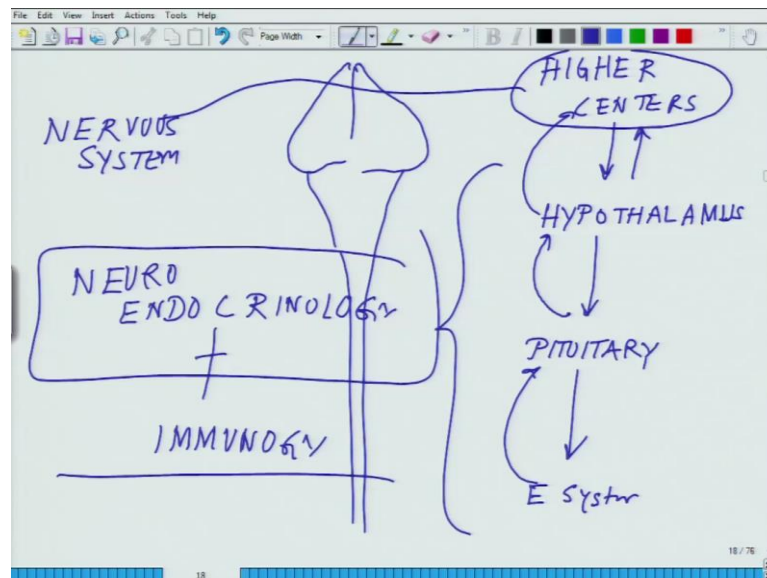 File Edit View Insert Actions Tools Help
Page Width
B I
HIGHER
CENTERS
NERVOUS
SYSTEM
HYPOTHALAMUS
NEURO
ENDOCRINOLOGY
+
PITUITARY
IMMUNOGY
E System
18 / 76
18